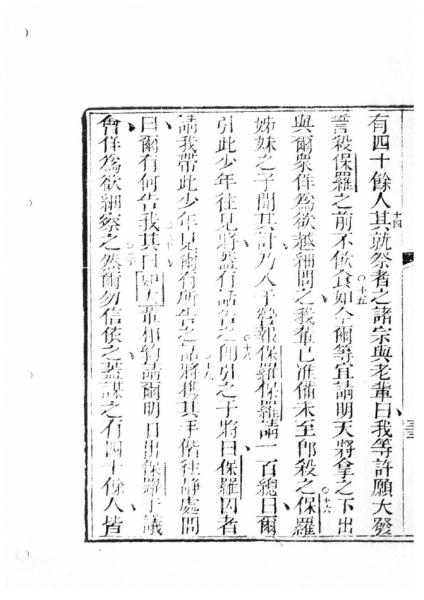 有四十餘人其就祭者之諸宗與老輩曰我等許願大發
十四
誓殺保羅之前不飲食如今爾等宜請明天將拿之下出
十五
與爾衆佯為欲越細問之我輩已准備未至即殺之保羅
十六
姊妹之子聞其計乃入于營報保羅保羅請一百總曰爾
引此少年往見將蓋有話告之即引之于將曰保羅囚者
十八
請我帶此少年見爾有所告之話將携其手偕往靜處問
十九
曰爾有何告我其曰如大輩相約請爾明日出保羅于議
會佯為欲細察之然爾勿信依之蓋謀之有四十餘人皆